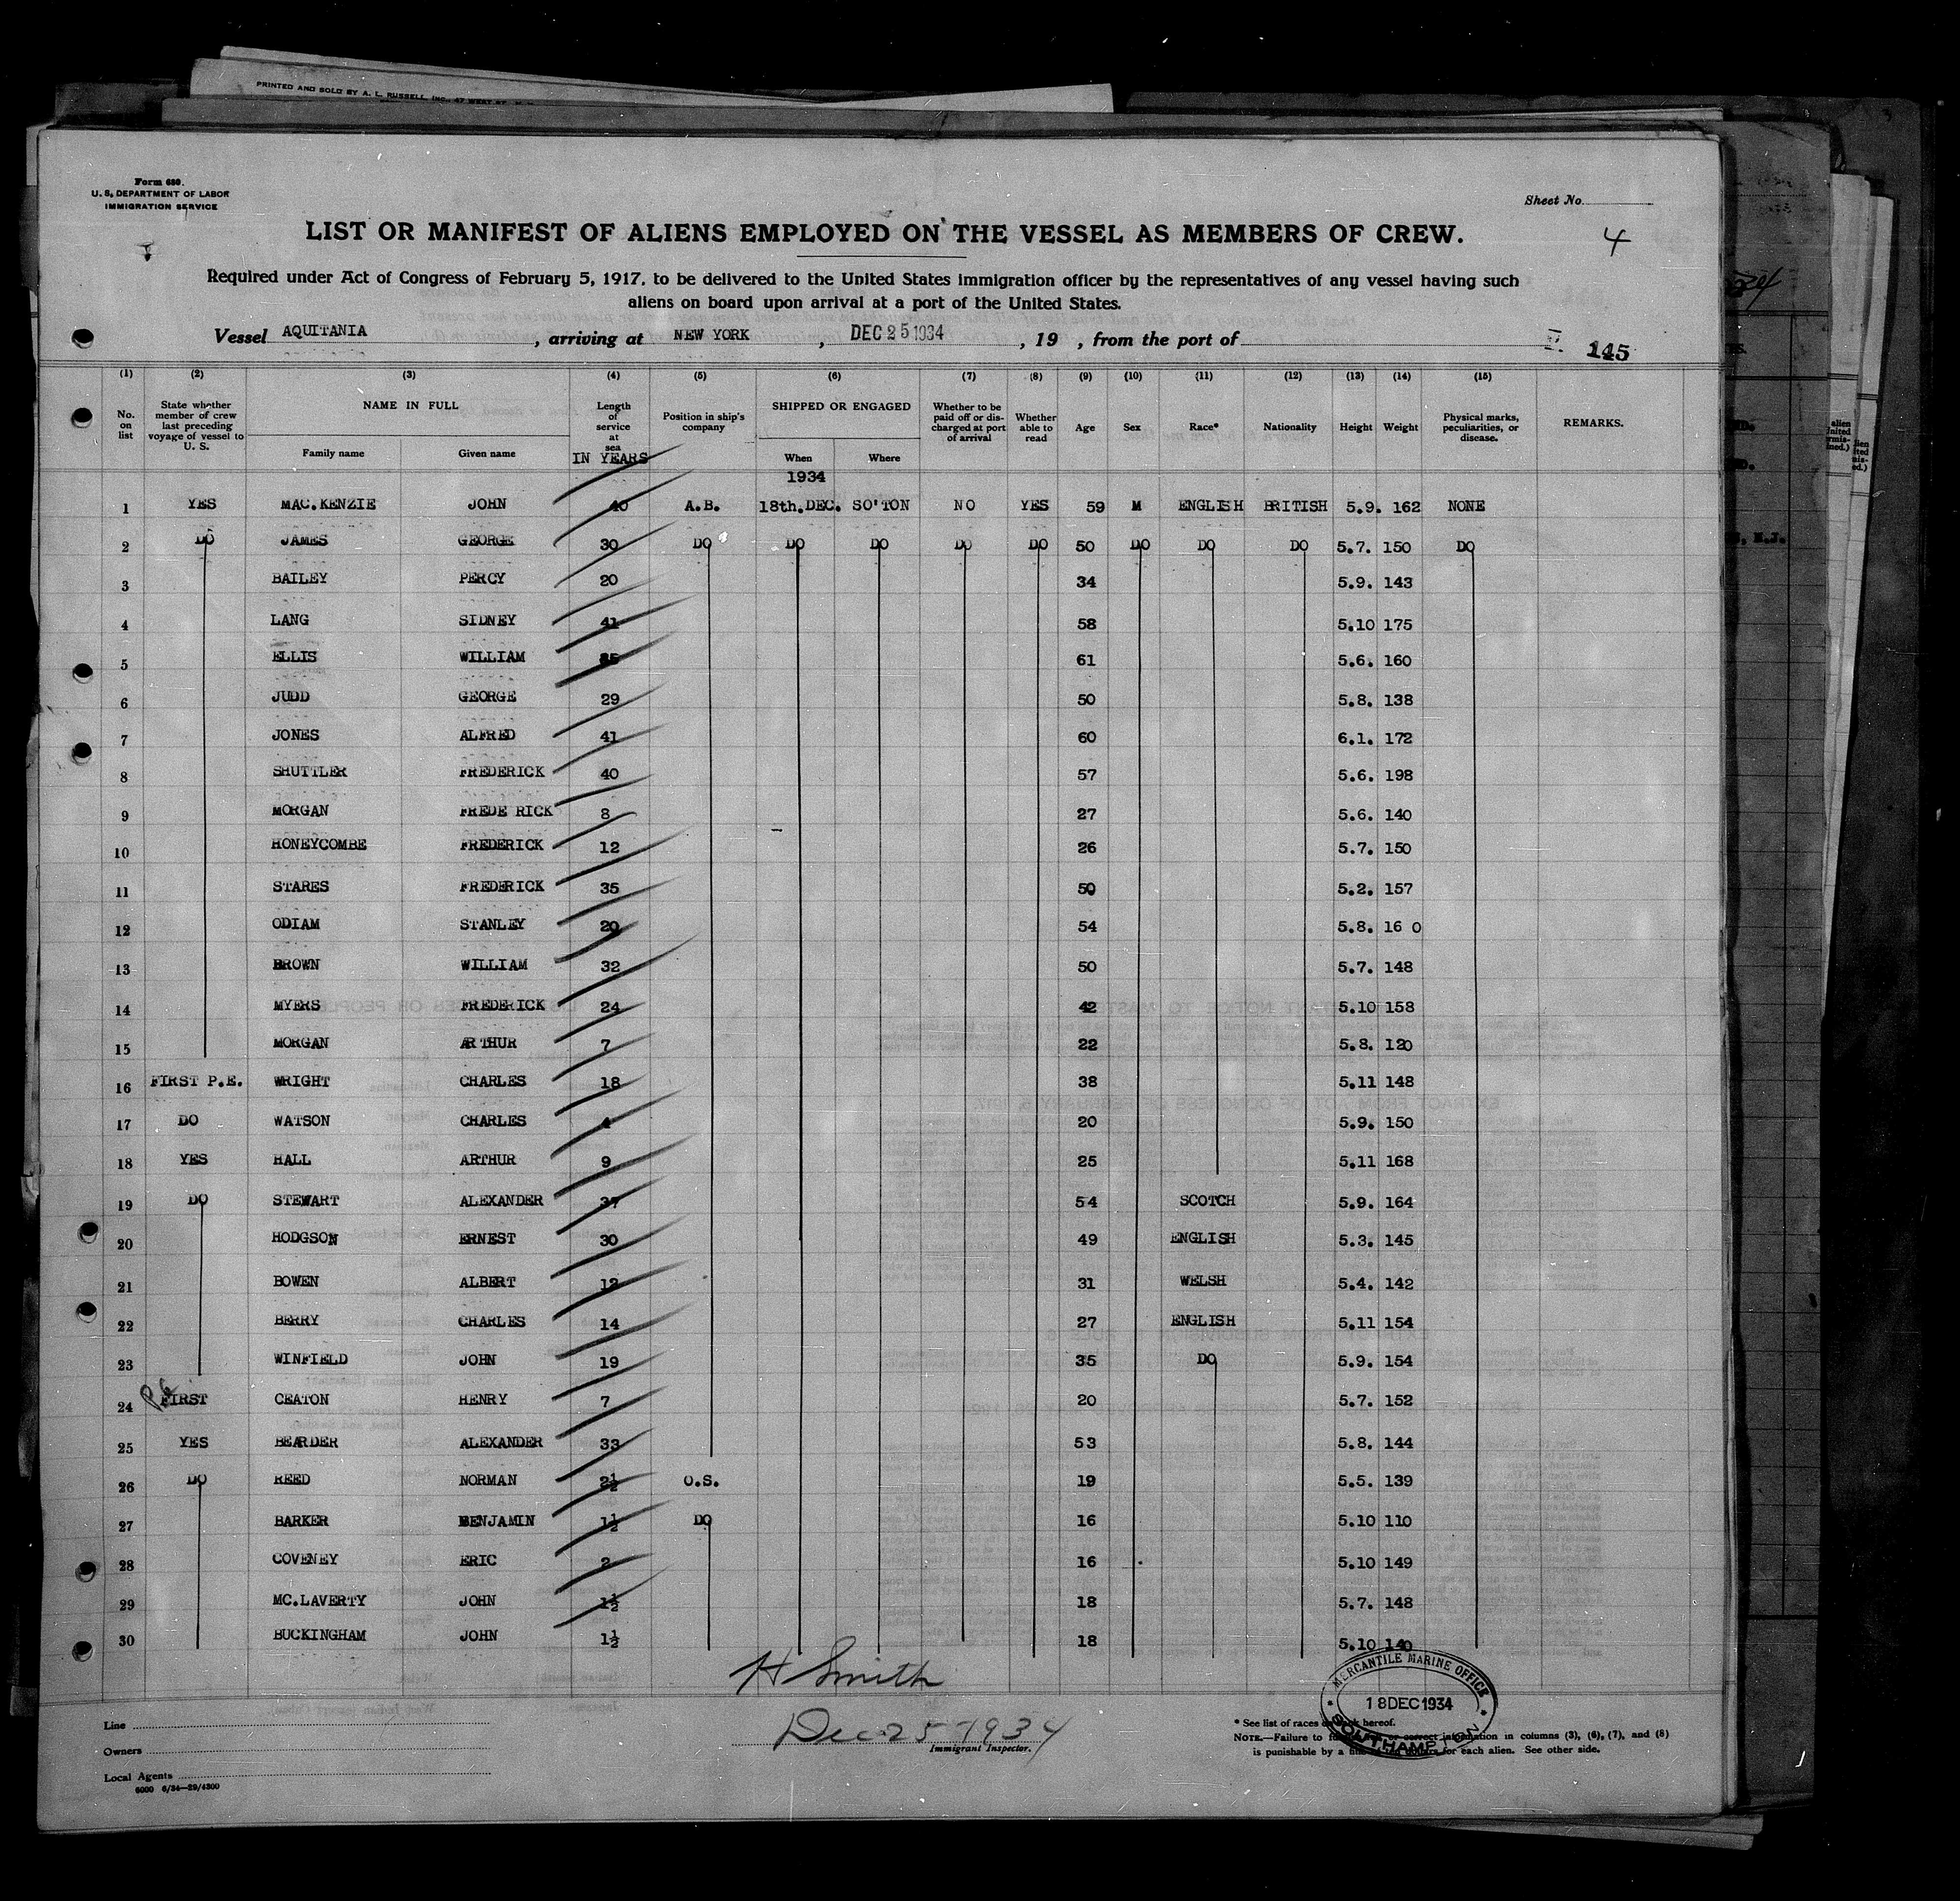 PRINTED AND SOLD BY A. L. RUSSELL, INC., 47 WEST ST.
Form 680.
U. S. DEPARTMENT OF LABOR
IMMIGRATION SERVICE
Sheet No.
4
LIST OR MANIFEST OF ALIENS EMPLOYED ON THE VESSEL AS MEMBERS OF CREW.
Required under Act of Congress of February 5, 1917, to be delivered to the United States immigration officer by the representatives of any vessel having such
aliens on board upon arrival at a port of the United States.
Vessel AQUITANIA, arriving at NEW YORK, DEC 25 1934, 19 , from the port of
145
(1) (2) (3) (4) (5) (6) (7) (8) (9) (10) (11) (12) (13) (14) (15)
No. on list State whether member of crew last preceding voyage of vessel to U. S. NAME IN FULL Length of service at sea Position in ship's company SHIPPED OR ENGAGED Whether to be paid off or discharged at port of arrival Whether able to read Age Sex Race* Nationality Height Weight Physical marks, peculiarities, or disease. REMARKS.
Family name Given name IN YEARS When Where
1934
1 YES MAC.KENZIE JOHN 40 A.B. 18th.DEC. SO'TON NO YES 59 M ENGLISH BRITISH 5.9. 162 NONE
2 DO JAMES GEORGE 30 DO DO DO DO DO 50 DO DO DO 5.7. 150 DO
3 BAILEY PERCY 20 34 5.9. 143
4 LANG SIDNEY 41 58 5.10 175
5 ELLIS WILLIAM 61 5.6. 160
6 JUDD GEORGE 29 50 5.8. 138
7 JONES ALFRED 41 60 6.1. 172
8 SHUTTLER FREDERICK 40 57 5.6. 198
9 MORGAN FREDE RICK 8 27 5.6. 140
10 HONEYCOMBE FREDERICK 12 26 5.7. 150
11 STARES FREDERICK 35 50 5.2. 157
12 ODIAM STANLEY 20 54 5.8. 16 0
13 BROWN WILLIAM 32 50 5.7. 148
14 MYERS FREDERICK 24 42 5.10 158
15 MORGAN ARTHUR 7 22 5.8. 120
16 FIRST P.E. WRIGHT CHARLES 18 38 5.11 148
17 DO WATSON CHARLES 4 20 5.9. 150
18 YES HALL ARTHUR 9 25 5.11 168
19 DO STEWART ALEXANDER 37 54 SCOTCH 5.9. 164
20 HODGSON ERNEST 30 49 ENGLISH 5.3. 145
21 BOWEN ALBERT 12 31 WELSH 5.4. 142
22 BERRY CHARLES 14 27 ENGLISH 5.11 154
23 WINFIELD JOHN 19 35 DO 5.9. 154
24 PE FIRST CEATON HENRY 7 20 5.7. 152
25 YES BEARDER ALEXANDER 33 53 5.8. 144
26 DO REED NORMAN 2½ O.S. 19 5.5. 139
27 BARKER BENJAMIN 1½ DO 16 5.10 110
28 COVENEY ERIC 2 16 5.10 149
29 MC.LAVERTY JOHN 1½ 18 5.7. 148
30 BUCKINGHAM JOHN 1½ 18 5.10 140
H Smith
Dec 25 1934
Immigrant Inspector.
MERCANTILE MARINE OFFICE
18 DEC 1934
SOUTHAMPTON
Line
Owners
Local Agents
6000 6/34—29/4300
* See list of races on back hereof.
NOTE.—Failure to or correct information in columns (3), (6), (7), and (8)
is punishable by a fine of ten dollars for each alien. See other side.